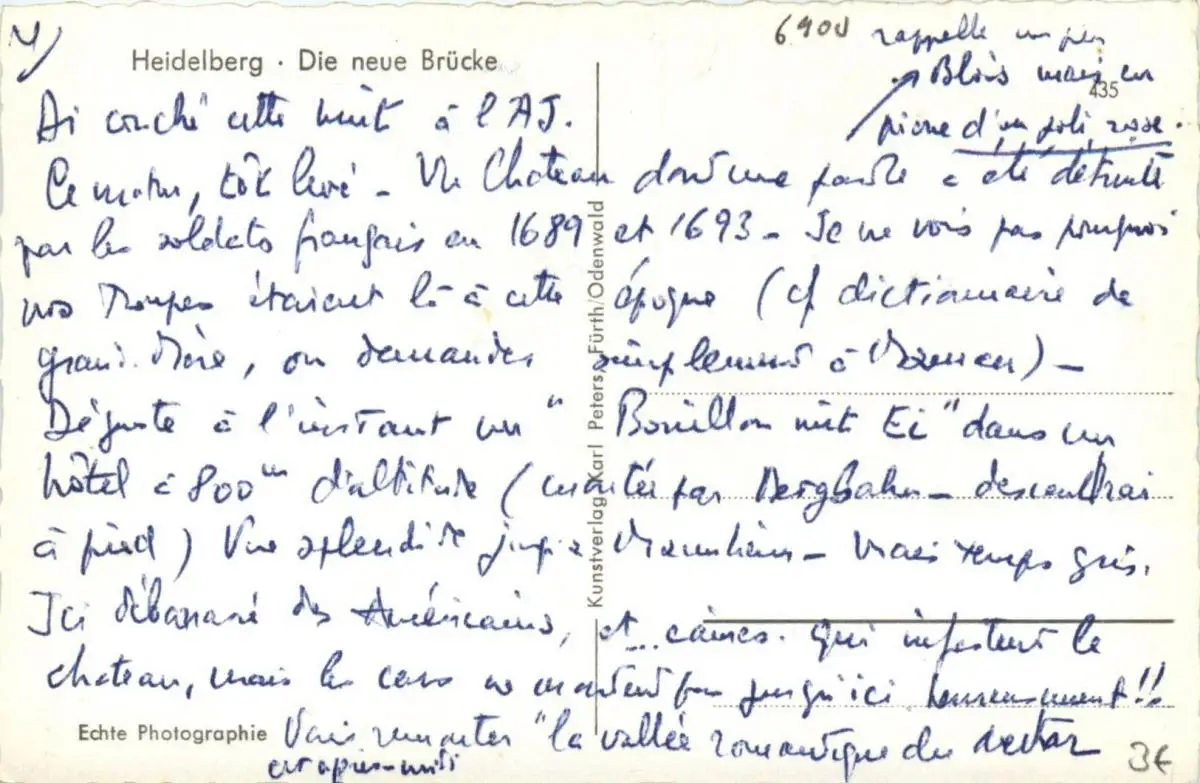 4)
6900
rappelle un peu
Heidelberg · Die neue Brücke
Blois mais en
435
pierre d'un joli rose.
Ai couché cette nuit à l'AJ.
Ce matin, tôt levé - Vu Chateau dont une partie a été détruite
par les soldats français en 1689 et 1693 - Je ne vois pas pourquoi
nos troupes étaient là à cette époque (cf dictionnaire de
grand-Mère, ou demander simplement à Maman) -
Déguste à l'instant un "Bouillon mit Ei" dans un
hôtel à 800m d'altitude (montée par Bergbahn - descendrai
à pied) Vue splendide jusqu'à Mannheim - Mais temps gris.
Ici débarrassé des Américains, et... qui infestent le
chateau, mais les cars ne montent pas jusqu'ici heureusement!!
Echte Photographie
Vais remonter "la vallée romantique du Neckar
cet après-midi
3€
Kunstverlag Karl Peters, Fürth/Odenwald